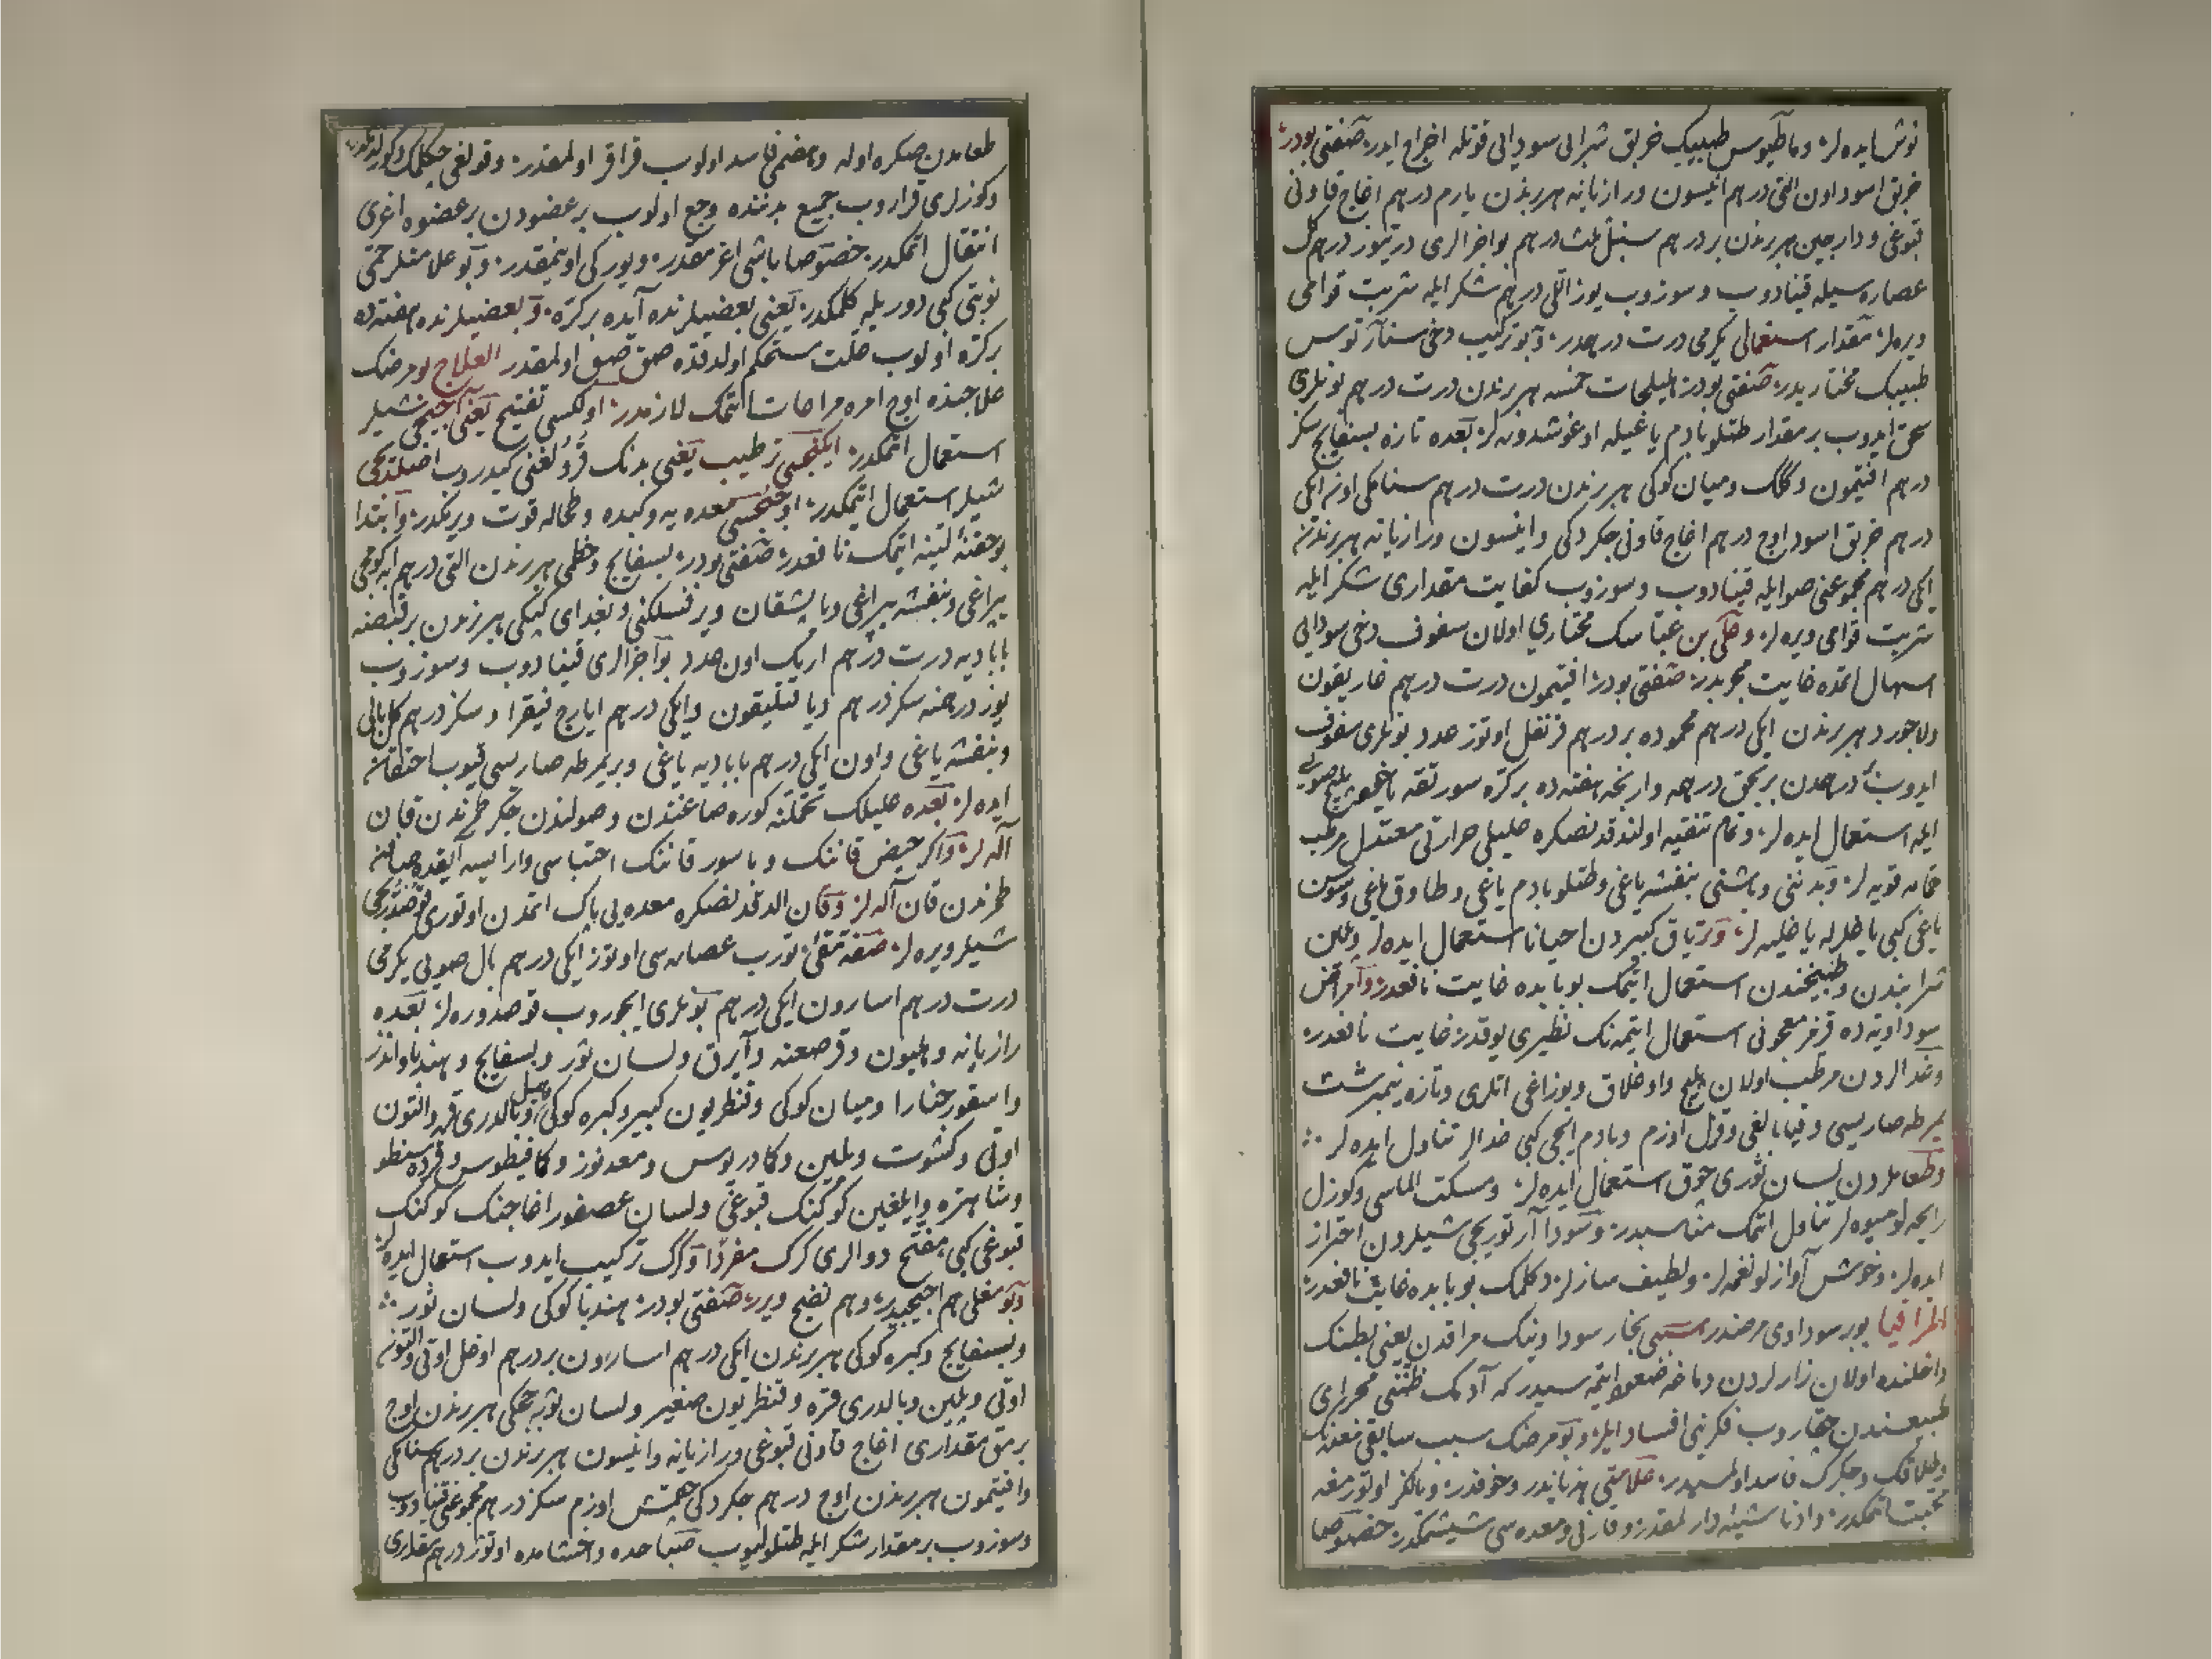 نوش ایده‌لر وماطیوس طبیبك خربق شرابی سودایی قوتله اخراج ایدر صنعتی بودر
خربق اسود اون التی درهم انیسون ورازیانه هر برندن یارم درهم اغاج قاونی
قبوغی ودارچین هر برندن بر درهم سنبل ثلث درهم بو اجزالری درتیوز درهم كل
عصاره سیله قینادوب وسوزوب یوز اللی درهم شكر ایله شربت قوامی
ویره‌لر مقدار استعمالی یكرمی درت درهمدر وبو تركیب دخی سنارتوس
طبیبك مختاریدر صنعتی بودر هلیلجات خمسه هر برندن درت درهم بونلری
سحق ایدوب بر مقدار طتلو بادم یاغیله اوغوشدوره‌لر بعده تازه بسفایج سكز
درهم افتیمون وكلك ومیان كوكی هر برندن درت درهم سنامكی اون ایكی
درهم خربق اسود اوچ درهم اغاج قاونی چكردكی وانیسون ورازیانه هر برندن
ایكی درهم مجموعنی صو ایله قینادوب وسوزوب كفایت مقداری شكر ایله
شربت قوامی ویره‌لر وعلی بن عباسك مختاری اولان سفوف دخی سودایی
اسهال اتمده غایت مجربدر صنعتی بودر افتیمون درت درهم غاریقون
ولاجورد هر برندن ایكی درهم محموده بر درهم قرنفل اوتوز عدد بونلری سفوف
ایدوب درهمدن بر بچق درهمه وارنجه هفته ده بر كره سورتقه یاخود صویی
ایله استعمال ایده‌لر وتمام تنقیه اولندقدنصكره علیلی حرارتی معتدل مرطب
حمامه قویه‌لر وبدننی وباشنی بنفشه یاغی وطتلو بادم یاغی وطاوق یاغی وسوسن
یاغی كبی یاغلر له یاغلیه‌لر وتریاق كبیردن احیانا استعمال ایده‌لر وپلین
شرابندن وطبیخندن استعمال ایتمك بو بابده غایت نافعدر وامراض
سوداویه ده قرمز معجونی استعمال ایتمه‌نك نظیری یوقدر غایت نافعدر
وغدالردن مرطب اولان پلیچ واوغلاق وبوزاغی اتلری وتازه نیمبرشت
یمرطه صاریسی وقیا بالغی وقزل اوزم وبادم ایچی كبی غدالر تناول ایده‌لر
وطعاملردن لسان ثوری چوق استعمال ایده‌لر ومسكت الماسی وكوزل
رایحه‌لو میوه‌لر تناول اتمك مناسبدر وسودا آرتوریجی شیلردن احتراز
ایده‌لر وخوش آوازلو نغمه‌لر ولطیف سازلر دكلمك بو بابده غایت نافعدر
المراقیا بو بر سوداوی مرضدر سببی بخار سوداوینك مراقدن یعنی بطنك
داخلنده اولان زارلردن دماغه صعود ایتمه سیدر كه آدمك ظننی مجرای
طبیعیسندن چقاروب فكرینی افساد ایلر وبو مرضك سبب سابقی معده‌نك
وطلاقك وجكرك فاسد اولمسیدر علامتی هذیاندر وخوفدر ویالكز اوتورمغه
محبت اتمكدر وادنا شیئه دارلمقدر وقارنی ومعده سی شیشمكدر خصوصا
طعامدن صكره اوله وهضمی فاسد اولوب قراقر اولمقدر وقولغی چكلمك
وكوزلری قراروب جمیع بدننده وجع اولوب بر عضودن بر عضوه اغری
انتقال اتمكدر خصوصا باشی اغرمقدر ویوركی اوینمقدر وبو علامتلر حمی
نوبتی كبی دور یله كلمكدر یعنی بعضیلرنده آیده بر كره وبعضیلرنده هفته ده
بر كره اولوب علت مستحكم اولدقده صق صق اولمقدر العلاج بو مرضك
علاجنده اوچ امره مراعات اتمك لازمدر اولكسی تفتیح یعنی آچیجی شیلر
استعمال اتمكدر ایكنجیسی ترطیب یعنی بدنك قرولغنی كیدروب اصلدیجی
شیلر استعمال ایتمكدر اوچنجیسی معده یه وكبده وطحاله قوت ویرمكدر وابتدا
بو حقنهٔ لینه ایتمك نافعدر صنعتی بودر بسفایج وخطمی هر برندن التی درهم ابه‌كومجی
یپراغی وبنفشه یپراغی ویاپشقان ویر فسلكنی وبغدای كپكی هر برندن بر قبضه
بابادیه درت درهم اریك اون عدد بو اجزالری قینادوب وسوزوب
یوز درهمنه سكز درهم دیاقتلیقون وایكی درهم ایارج فیقرا وسكز درهم كل بالی
وبنفشه یاغی واون ایكی درهم بابادیه یاغی وبر یمرطه صاریسی قیوب احتقان
ایده‌لر بعده علیلك تحملنه كوره صاغندن وصولندن جكر طمرندن قان
آله‌لر واكر حیض قاننك ویاسور قاننك احتباسی وار ایسه آیقده صافن
طمرندن قان آله‌لر وقان الدقدنصكره معده یی پاك اتمدن اوتوری قوصدریجی
شیلر ویره‌لر صفة مقئ تورب عصاره سی اوتوز ایكی درهم بال صویی یكرمی
درت درهم اسارون ایكی درهم بونلری ایچوروب قوصدوره‌لر بعده
رازیانه وهلیون وقرصعنه وآیرق ولسان ثور وبسفایج وهندبا واندز
واسقورجنارا ومیان كوكی وقنطریون كبیر وكبره كوكی وبالدری قره والتون
اوتی وكشوت وپلین وكمادریوس ومعدنوز وكمافیطوس وقرده سنطو
وشاهتره وایلغین كوكنك قبوغی ولسان عصفور اغاجنك كوكنك
قبوغی كبی مفتح دوالری كرك مفردا وكرك تركیب ایدوب استعمال ایده‌لر
وبو مغلی هم آچیجیدر وهم نضج ویرر صنعتی بودر هندبا كوكی ولسان ثور
وبسفایج وكبره كوكی هر برندن ایكی درهم اسارون بر درهم اوغل اوتی والتون
اوتی وپلین وبالدری قره وقنطریون صغیر ولسان ثور چچكی هر برندن اوچ
برمق مقداری اغاج قاونی قبوغی ورازیانه وانیسون هر برندن بر درهم سنامكی
وافتیمون هر برندن اوچ درهم چكردكی چقمش اوزم سكز درهم مجموعنی قینادوب
وسوزوب بر مقدار شكر ایله طتلولیوب صباحده واخشامده اوتوز درهم مقداری